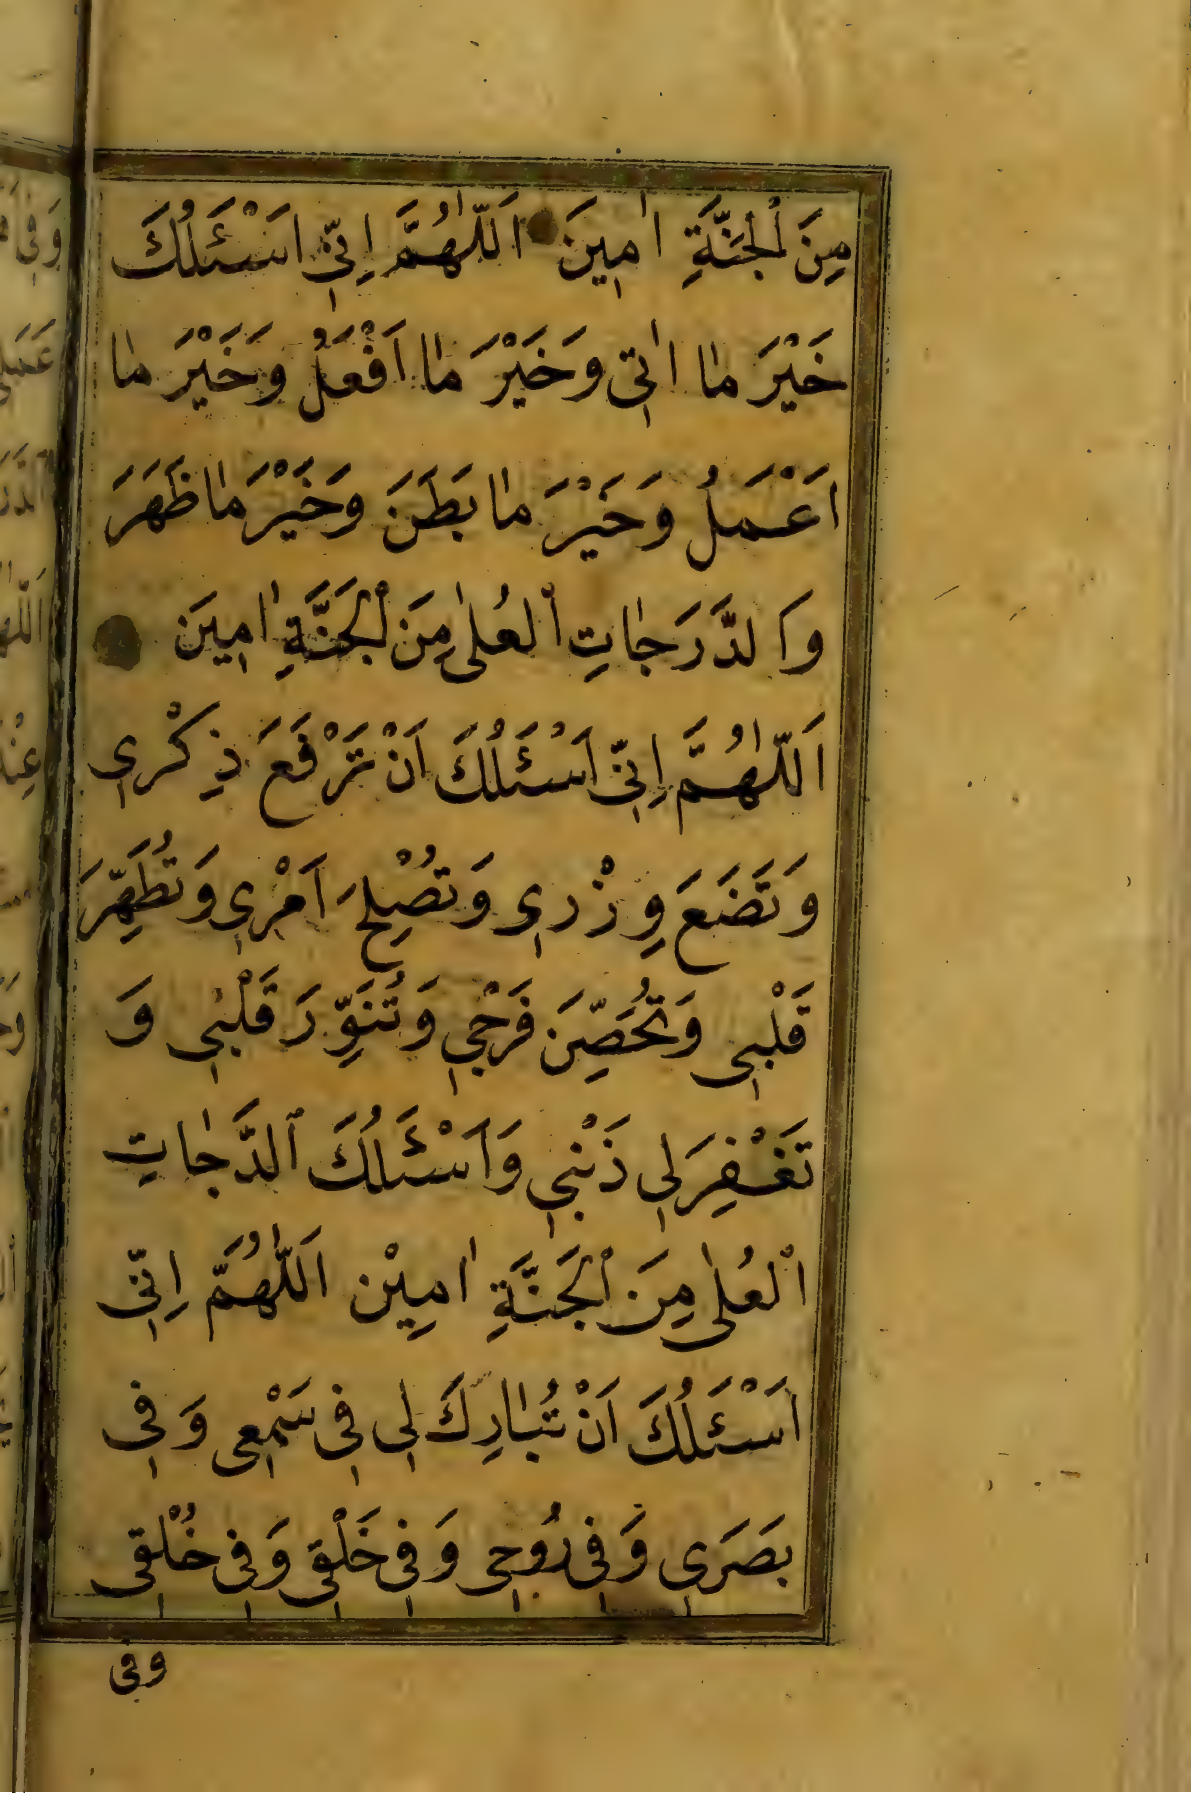 مِنَ الْجَنَّةِ اٰمِينَ اَللّٰهُمَّ اِنِّي اَسْـَٔلُكَ
خَيْرَ مٰا اٰتِي وَخَيْرَ مٰا اَفْعَلُ وَخَيْرَ مٰا
اَعْمَلُ وَخَيْرَ مٰا بَطَنَ وَخَيْرَ مٰا ظَهَرَ
وَالدَّرَجٰاتِ الْعُلٰى مِنَ الْجَنَّةِ اٰمِينَ
اَللّٰهُمَّ اِنِّي اَسْـَٔلُكَ اَنْ تَرْفَعَ ذِكْرِي
وَتَضَعَ وِزْرِي وَتُصْلِحَ اَمْرِي وَتُطَهِّرَ
قَلْبِي وَتُحَصِّنَ فَرْجِي وَتُنَوِّرَ قَلْبِي وَ
تَغْفِرَ لِي ذَنْبِي وَاَسْـَٔلُكَ الدَّجٰاتِ
الْعُلٰى مِنَ الْجَنَّةِ اٰمِيْن اَللّٰهُمَّ اِنِّي
اَسْـَٔلُكَ اَنْ تُبٰارِكَ لِي فِي سَمْعِي وَفِي
بَصَرِي وَفِي رُوحِي وَفِي خَلْقِي وَفِي خُلْقِي
وفي